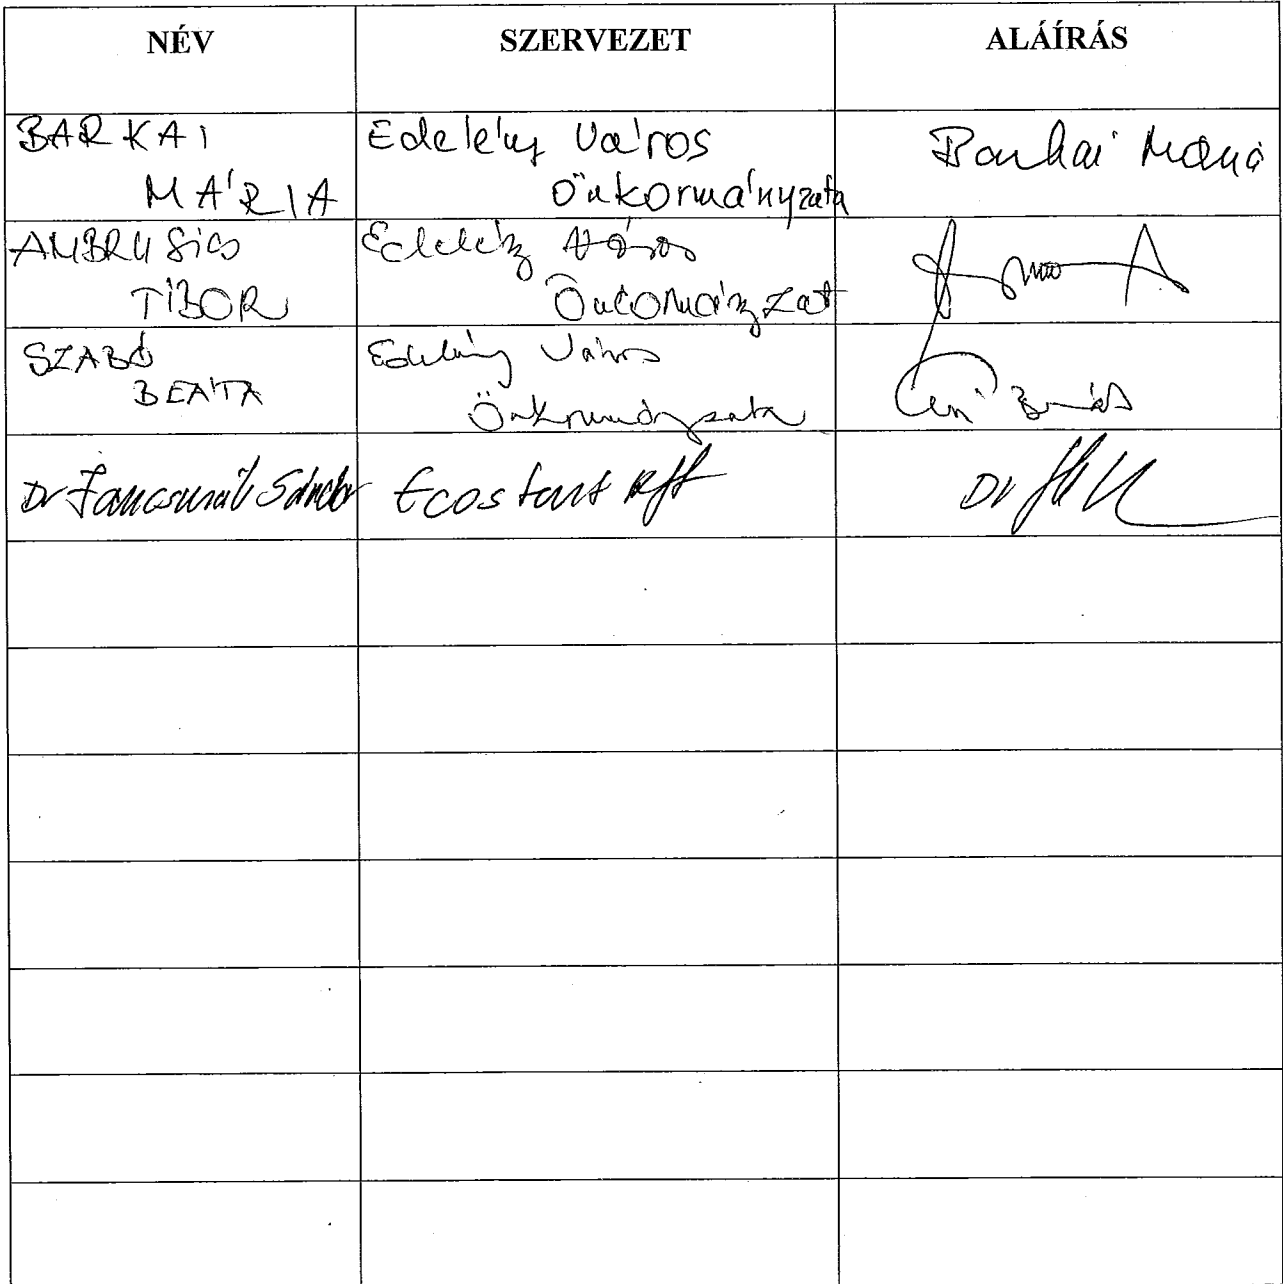 NÉV
SZERVEZET
ALÁÍRÁS
BARKAI
MÁRIA
Edelény Város
Önkormányzata
Barkai Mária
TIBOR
Edelény Város
Önkormányzat
SZABÓ
BEÁTA
Edelény Város
Önkormányzata
Dr
Sándor
Kft
Dr